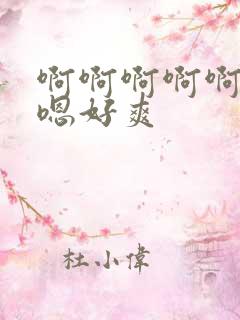 啊啊啊啊啊
嗯好爽
杜小偉